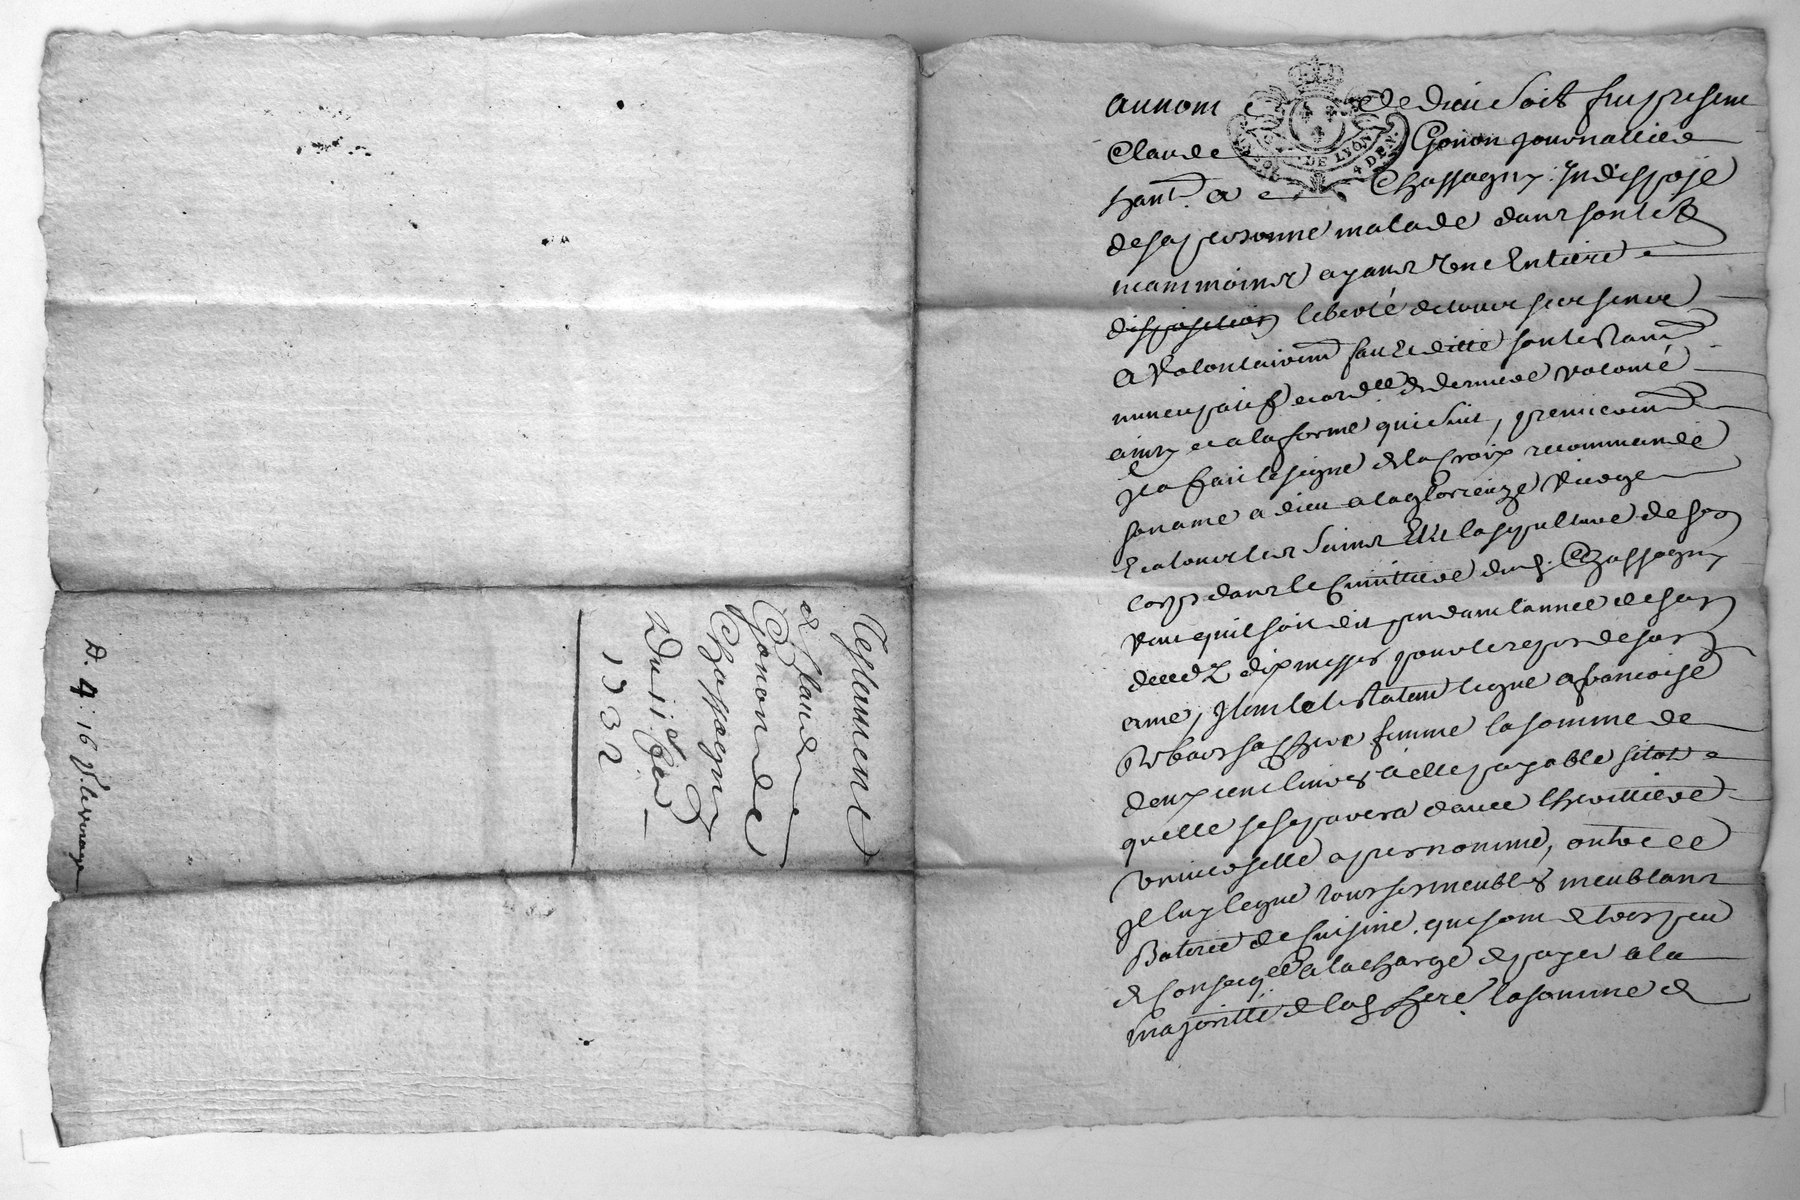 Testament
de Claude
Gonon de
Chassagny
Du 11 fer
1732
D. 4. 16
au nom de dieu soit fut present
Claude Gonon journallier
hant. a Chassagny Indispozé
de sa personne malade dans son lict
neanmoins ayant une Entiere
disposition liberté de tous ses sens
a Volontairemt fait Et ditté son testamt
nuncupatif et ord.ce de derniere volonté
ainsy et a la forme qui suit, premieremt
Il a fait le signe de la Croix recommandé
son ame a dieu a la glorieuze Vierge
Et a tous les saints Elit la sepulture de son
corps dans le Cimittiere dud. Chassagny
Veut quil soit dit pendant l'année de son
deced Z dix messes pour le repos de son
ame, Item le testateur legue a francoise
sa chere femme la somme de
deux cent livres a elle payable sitot
quelle se separera d'avec lheritiere
universelle apres nommé, outre ce
Il luy legue tous ses meubles meublant
Baterie de Cuisine, qui sont de tres peu
de conseq.ce a la charge de payer a la
majorité de las. here. la somme de
DE LYON
4 DEN.